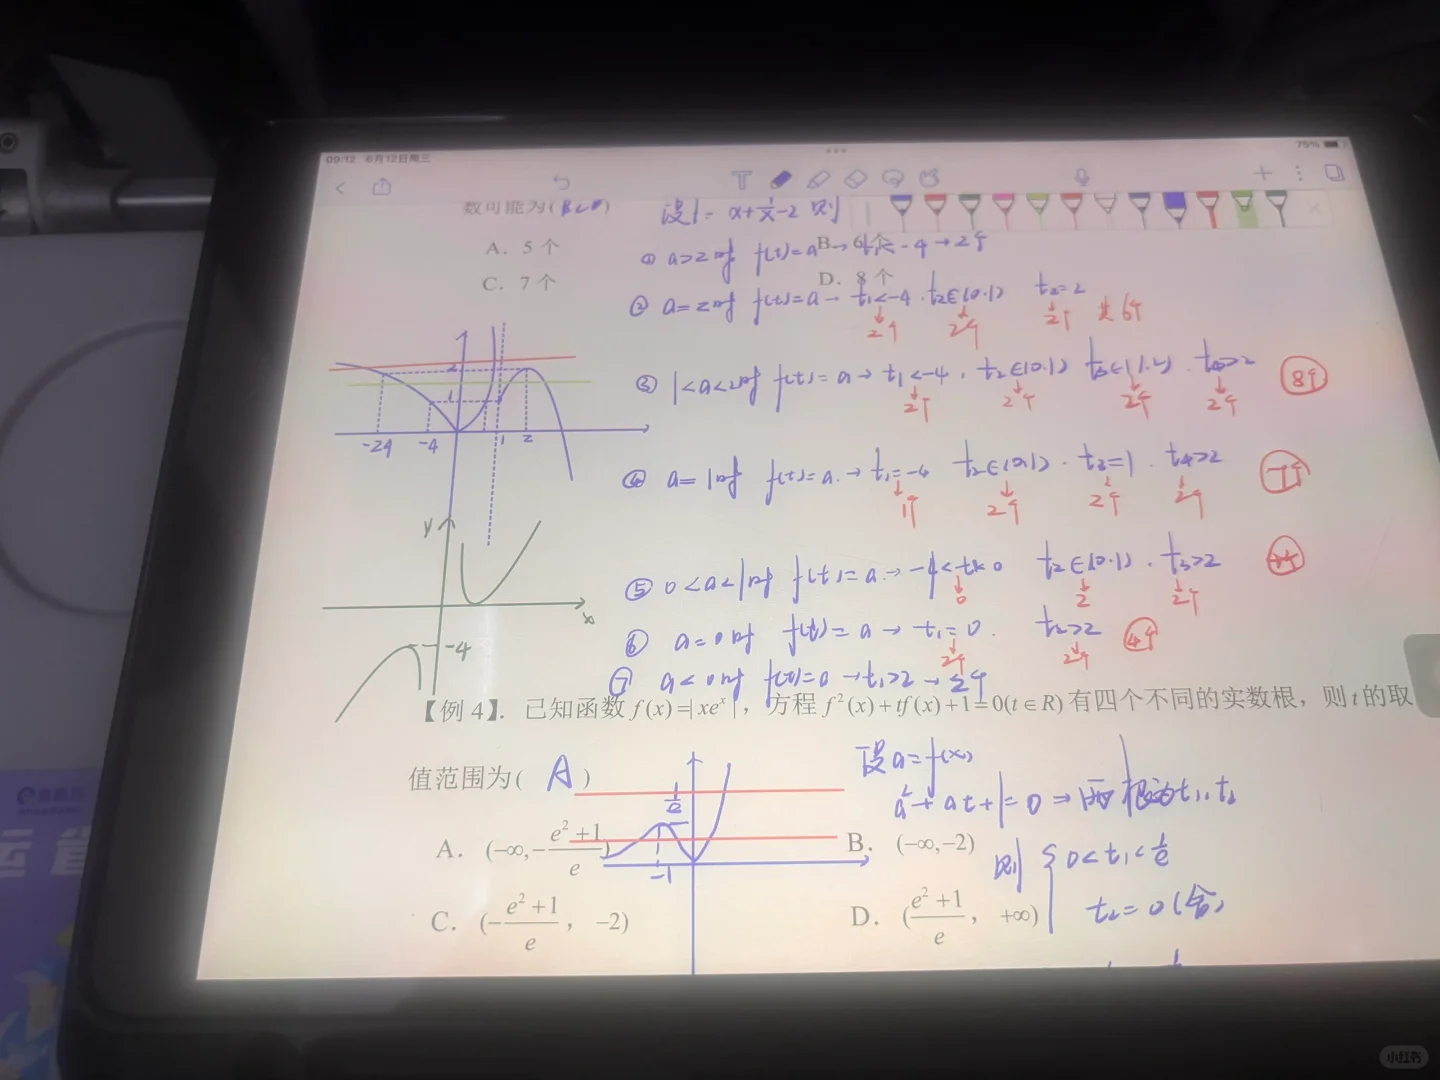 09:12 6月12日周三
75%
数可能为(BCD)
设t= x+1/x-2 则
A. 5 个
B. 6 个
① a>2时 f(t)=a → t₁<-4 → 2个
C. 7 个
D. 8 个
② a=2时 f(t)=a → t₁<-4 . t₂∈(0.1) t₃=2
2个 2个 2个 共6个
③ 1<a<2时 f(t)=a → t₁<-4 . t₂∈(0.1) t₃∈(1.2) . t₄>2 8个
2个 2个 2个 2个
④ a=1时 f(t)=a → t₁=-4 t₂∈(0.1) . t₃=1 . t₄>2 7个
1个 2个 2个 2个
⑤ 0<a<1时 f(t)=a → -4<t₁<0 t₂∈(0.1) . t₃>2
0 2 2个
⑥ a=0时 f(t)=a → t₁=0 . t₂>2 4个
2个 2个
⑦ a<0时 f(t)=a → t₁>2 → 2个
2
1
-24 -4 1 2
y
x
-4
【例 4】. 已知函数 f(x)=|xeˣ|, 方程 f²(x)+tf(x)+1=0(t∈R)有四个不同的实数根, 则 t 的取
值范围为( A )
设a=f(x)
a²+at+1=0 ⇒ 两根为t₁,t₂
1/e
-1
A. (-∞,-(e²+1)/e)
B. (-∞,-2)
则 { 0<t₁<1/e
t₂=0(舍)
C. (-(e²+1)/e, -2)
D. ((e²+1)/e, +∞)
小红书